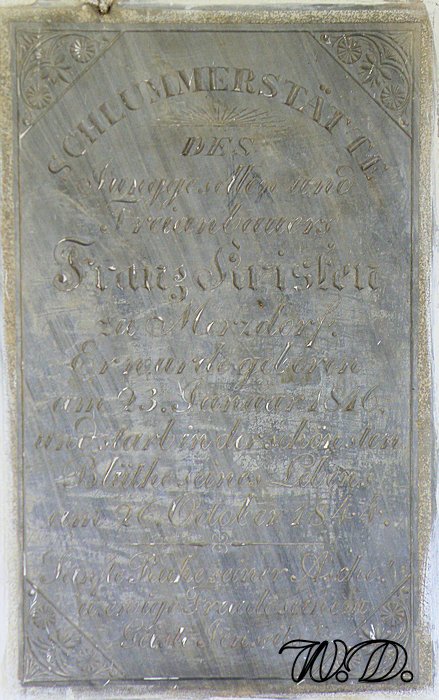 SCHLUMMERSTÄTTE
DES
Junggesellen und
Freianbauers
Franz Kristen
zu Merzdorf.
Er wurde geboren
am 23. Januar 1816.
und starb in der schönsten
Blüthe seines Lebens
am 26. October 1844.
Sanfte Ruhe seiner Asche!
W.D.